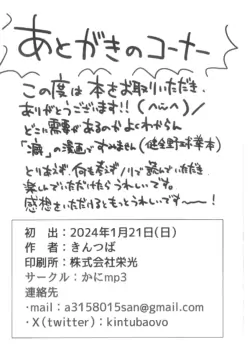 あとがきのコーナー
この度は本をお取りいただき、
ありがとうございます!!(^ω^)/
どこに需要があるのかよくわからん
「瀬」の漫画ですみません(健全野球拳本)
とりあえず、何も考えずノリで読んでいただき
楽しんでいただけたらうれしいです。
感想をいただけるともっとうれしいです〜〜!
初 出:2024年1月21日(日)
作 者:きんつば
印刷所:株式会社栄光
サークル:かにmp3
連絡先
・mail:a3158015san@gmail.com
・X(twitter):kintubaovo